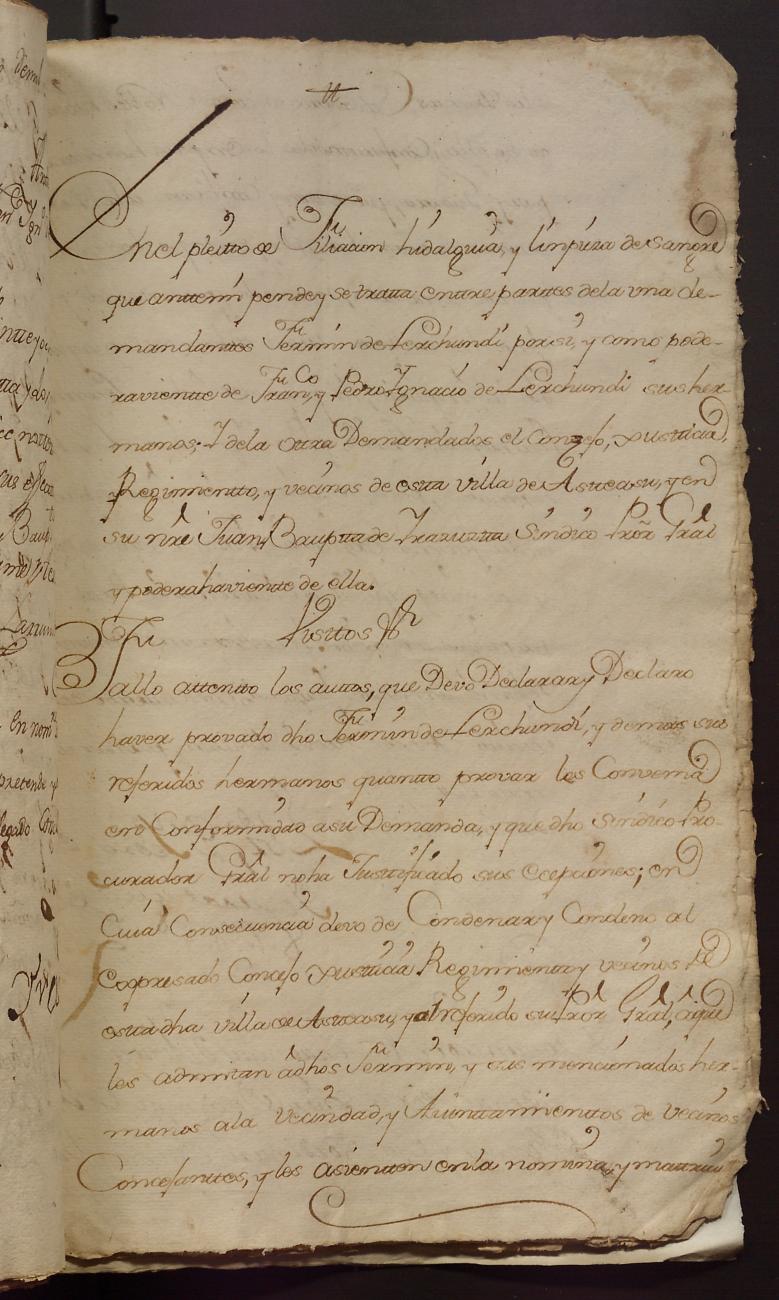 tt
En el pleitto de Filiacion hidalguia, y limpieza de sangre
que antemi pende y se tratta entre parttes de la una de-
mandanttes Fermin de Lerchundi porsi, y como pode-
ravientte de Franco, y Pedro Ygnacio de Lerchundi sus her-
manos; Y dela otra Demandados el Conzejo, Justicia,
Regimientto, y vecinos de esta villa de Asteasu, y en
su nre Juan Bauptta de Yrazuzta Sindico Pror Gral
y poderahavientte de ella.
Visttos &
Fallo attentto los auttos, que Devo Declarar y Declaro
haver provado dho Fermin de Lerchundi, y demas sus
referidos hermanos quantto provar les Combenia
en Conformidad asu Demanda, y que dho Sindico Pro-
curador Gral noha Justtificado sus ecepciones; en
Cuia Consecuencia devo de Condenar y Condeno al
expresado Concejo Justicia Regimientto y vecinos de
estta dha villa de Asteasu, y al referido su Pror Gral, a que
les admitan a dhos Fermin, y sus mencionados her-
manos ala Vecindad, y Aiunttamienttos de vecinos
Concejanttes, y les asientten en la nomina, y mattricu